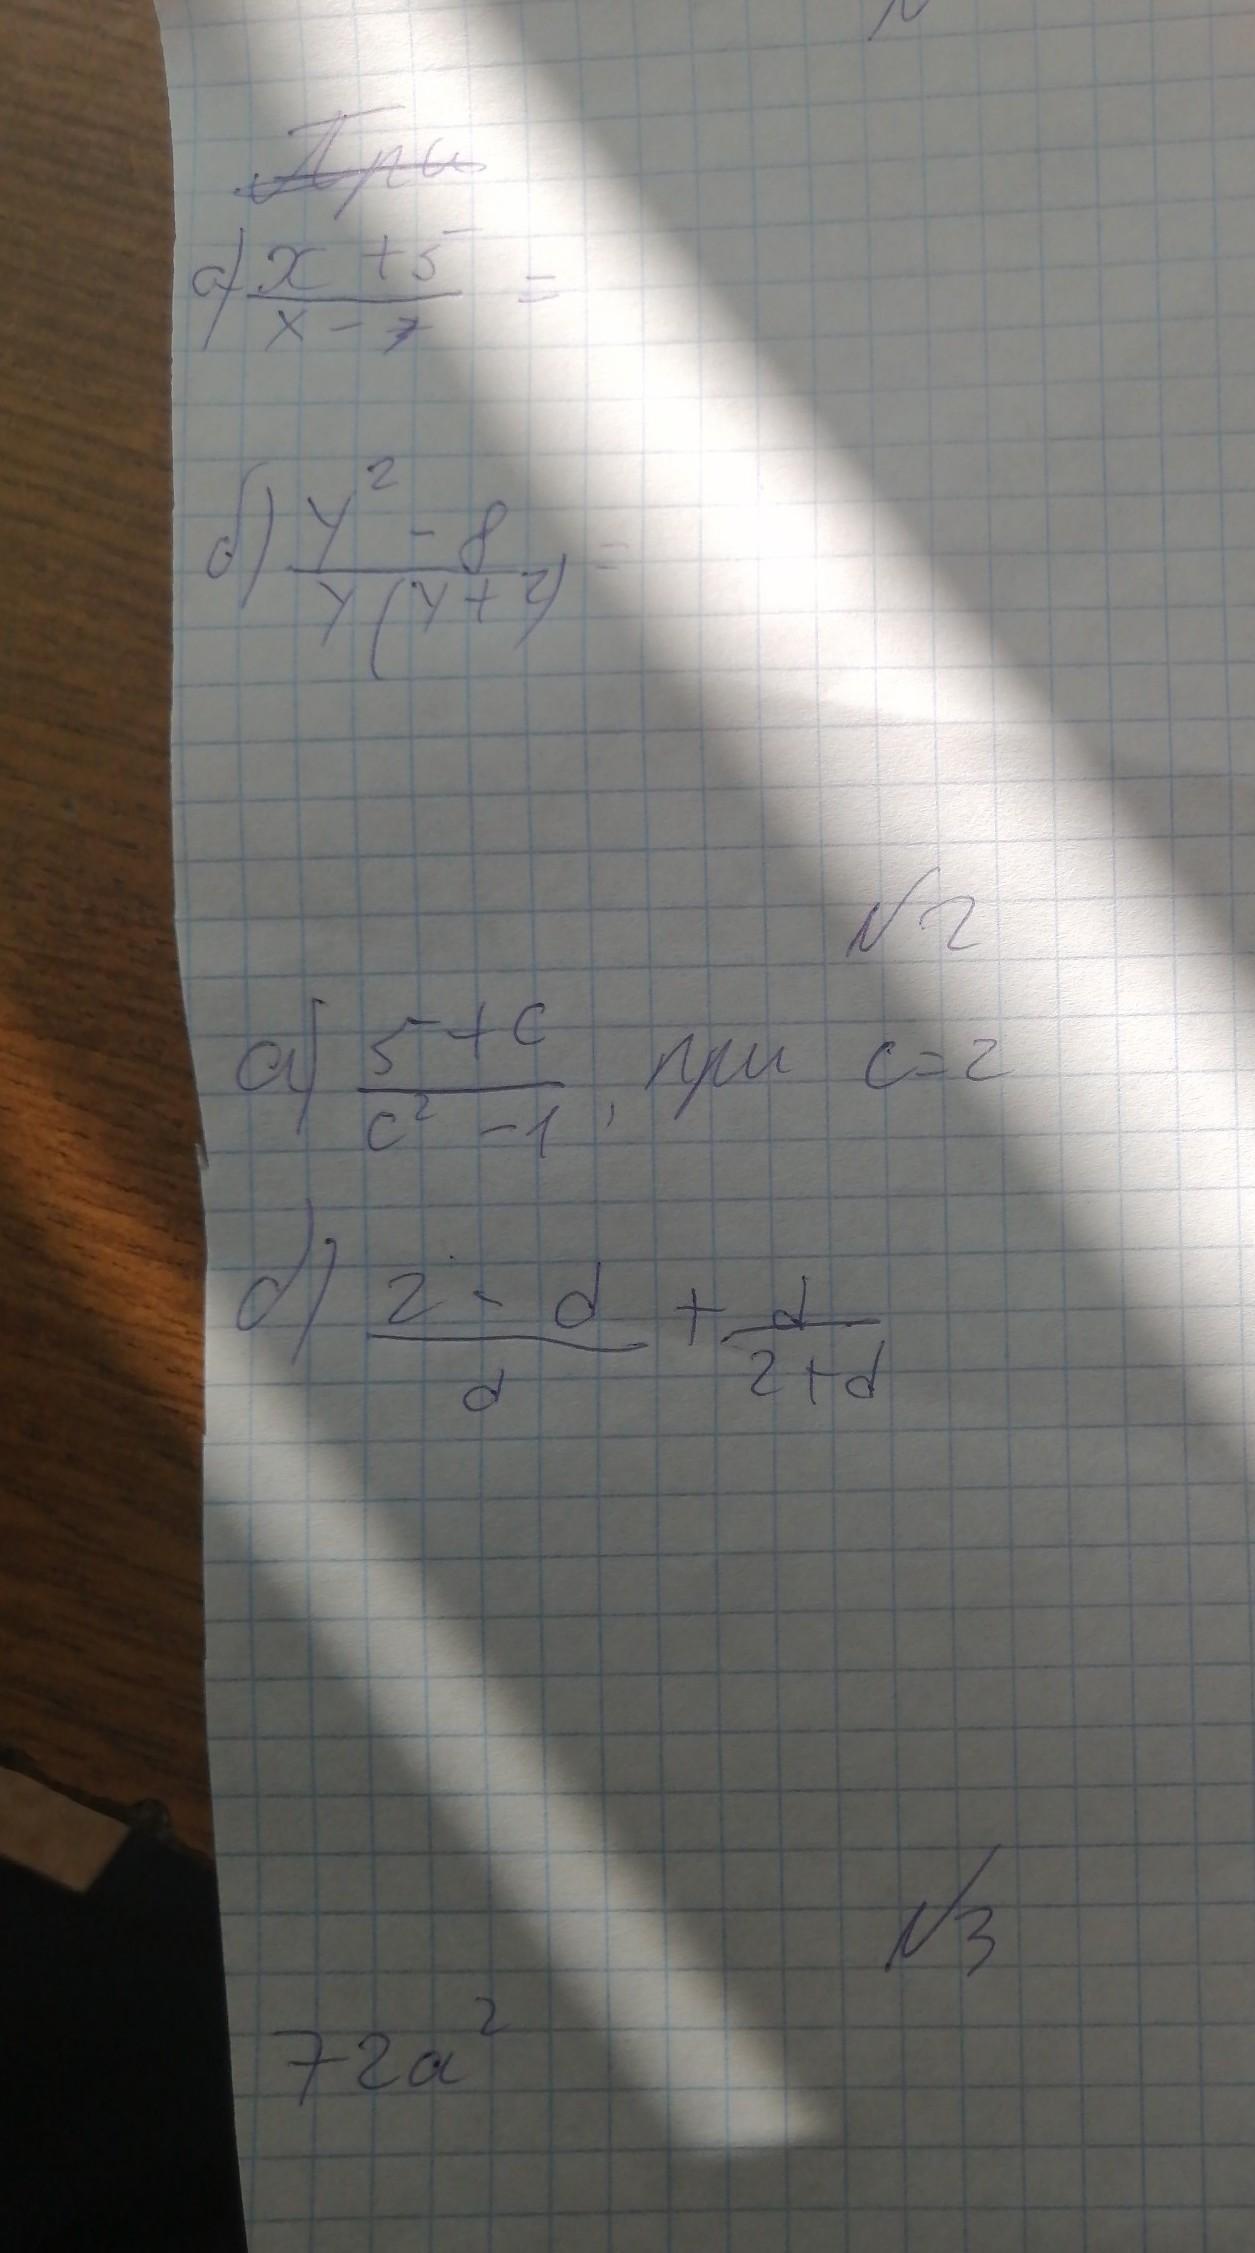 При
а) x + 5 / x - 7 =
б) y² - 8 / y(y+2) =
№2
а) 5 + c / c² - 1, при c=2
б) 2 - d / d + d / 2+d
№3
72a²